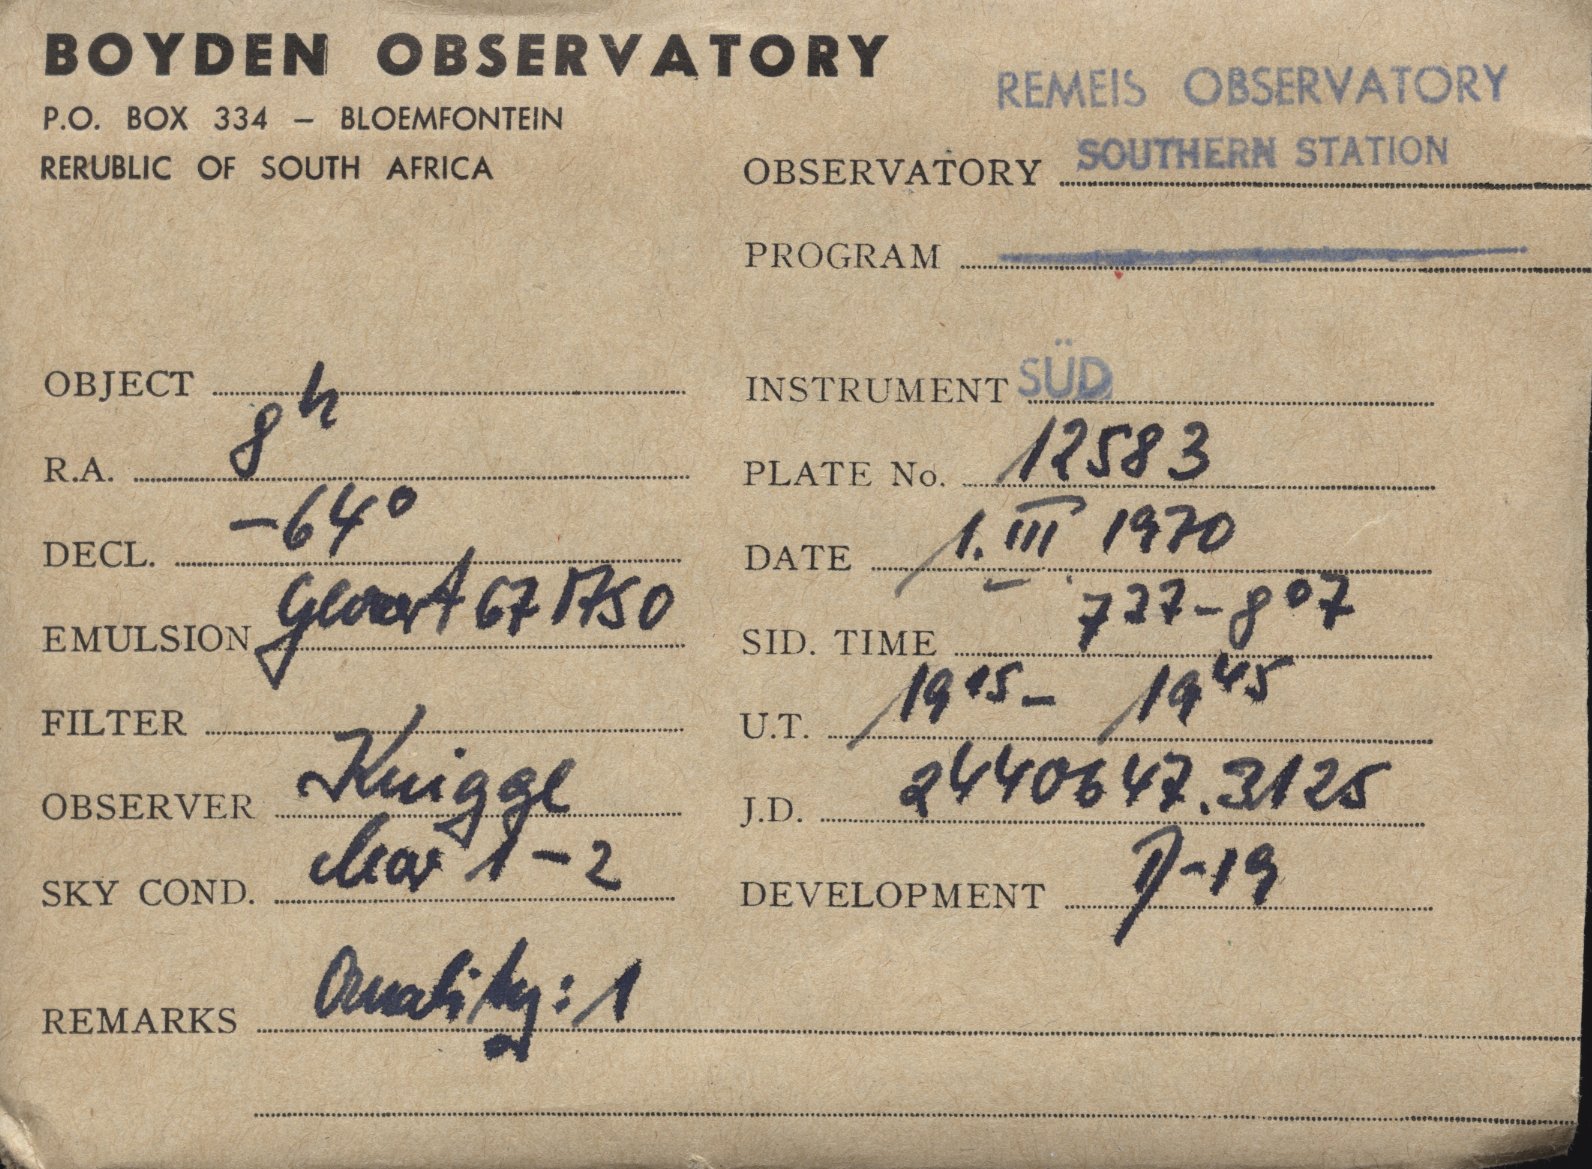 BOYDEN OBSERVATORY
P.O. BOX 334 – BLOEMFONTEIN
RERUBLIC OF SOUTH AFRICA
REMEIS OBSERVATORY
OBSERVATORY SOUTHERN STATION
PROGRAM
OBJECT
R.A. 8h
DECL. -64°
EMULSION Gevaert 67 A50
FILTER
OBSERVER Knigge
SKY COND. clear 1-2
INSTRUMENT SÜD
PLATE No. 12583
DATE 1. III 1970
SID. TIME 7 37 - 8 07
U.T. 19 15 - 19 45
J.D. 2440647.3125
DEVELOPMENT D-19
REMARKS Quality: 1